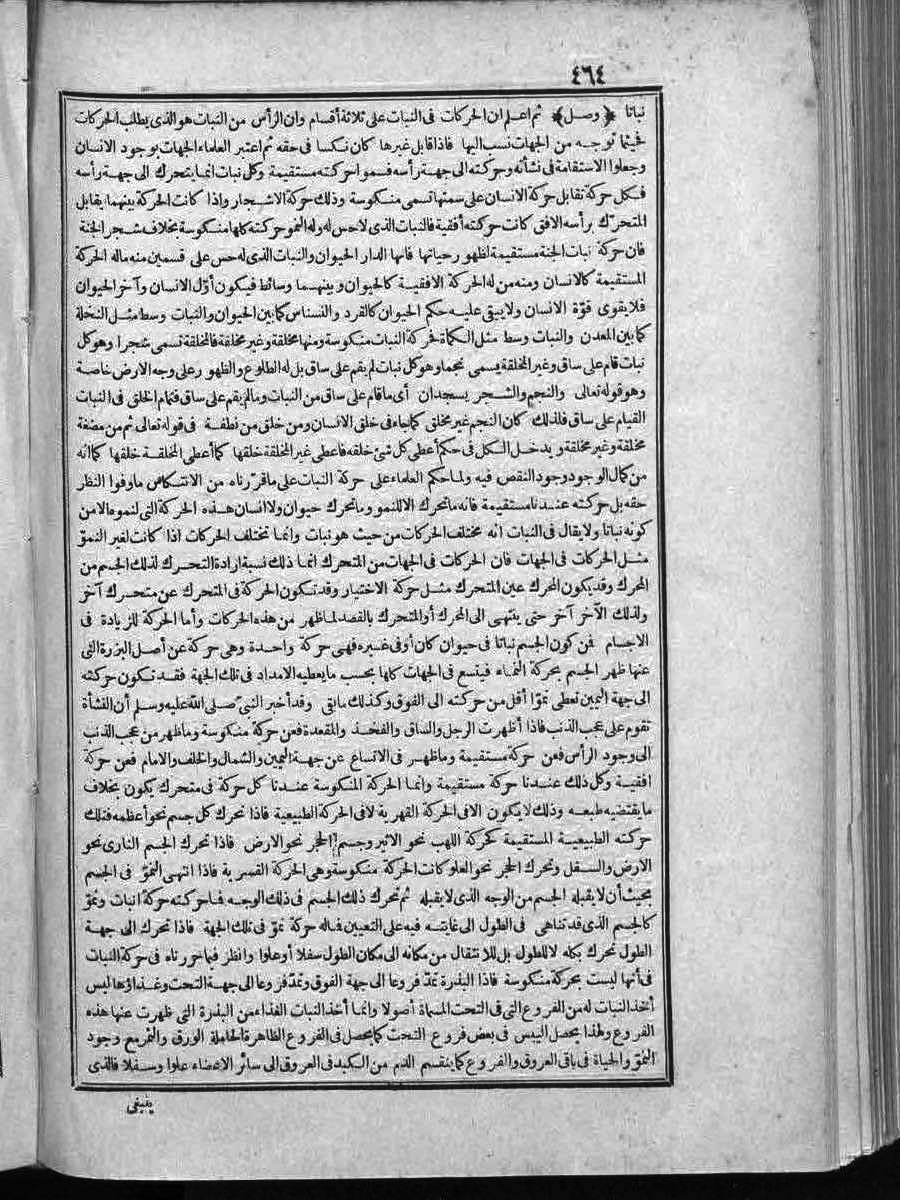 ٤٦٤
نباتا ﴿وصل﴾ ثم اعلم ان الحركات فى النبات على ثلاثة أقسام وان الرأس من النبات هو الذى يطلب الحركات
فحيثما توجه من الجهات نسب اليها فاذا قابل غيرها كان نكسا فى حقه ثم اعتبر العلماء الجهات بوجود الانسان
وجعلوا الاستقامة فى نشأته وحركته الى جهة رأسه فسموا حركته مستقيمة وكل نبات انما يتحرك الى جهة رأسه
فكل حركة تقابل حركة الانسان على سمتها تسمى منكوسة وذلك حركة الاشجار واذا كانت الحركة بينهما يقابل
المتحرك برأسه الافق كانت حركته أفقية فالنبات الذى لاحس له وله النمو حركته كلها منكوسة بخلاف شجر الجنة
فان حركة نبات الجنة مستقيمة لظهور حياتها فانها الدار الحيوان والنبات الذى له حس على قسمين منه ماله الحركة
المستقيمة كالانسان ومنه من له الحركة الافقية كالحيوان وبينهما وسائط فيكون أول الانسان وآخر الحيوان
فلا يقوى قوة الانسان ولا يبقى عليه حكم الحيوان كالقرد والنسناس كما بين الحيوان والنبات وسط مثل النخلة
كما بين المعدن والنبات وسط مثل الكمأة فحركة النبات منكوسة ومنها مخلقة وغير مخلقة فالمخلقة تسمى شجرا وهو كل
نبات قام على ساق وغير المخلقة يسمى نجما وهو كل نبات لم يقم على ساق بل له الطلوع والظهور على وجه الارض خاصة
وهو قوله تعالى والنجم والشجر يسجدان أى ما قام على ساق من النبات وما لم يقم على ساق فتمام الخلق فى النبات
القيام على ساق فلذلك كان النجم غير مخلق كما جاء فى خلق الانسان ومن خلق من نطفة فى قوله تعالى ثم من مضغة
مخلقة وغير مخلقة ويدخل الكل فى حكم أعطى كل شئ خلقه فاعطى غير المخلقة خلقها كما أعطى المخلقة خلقها كما انه
من كمال الوجود وجود النقص فيه ولما حكم العلماء على حركة النبات على ما قررناه من الانتكاس ما وفوا النظر
حقه بل حركته عندنا مستقيمة فانه ما تحرك الا للنمو وما تحرك حيوان ولا انسان هذه الحركة التى لنموه الا من
كونه نباتا ولا يقال فى النبات انه مختلف الحركات من حيث هو نبات وانما تختلف الحركات اذا كانت لغير النمو
مثل الحركات فى الجهات فان الحركات فى الجهات من المتحرك انما ذلك نسبة ارادة التحرك لذلك الجسم من
المحرك وقد يكون المحرك عين المتحرك مثل حركة الاختيار وقد تكون الحركة فى المتحرك عن متحرك آخر
ولذلك الآخر آخر حتى ينتهى الى المحرك أو المتحرك بالقصد لما ظهر من هذه الحركات وأما الحركة للزيادة فى
الاجسام فمن كون الجسم نباتا فى حيوان كان أو فى غيره فهى حركة واحدة وهى حركة عن أصل البزرة التى
عنها ظهر الجسم بحركة النماء فيتسع فى الجهات كلها بحسب ما يعطيه الامداد فى تلك الجهة فقد تكون حركته
الى جهة اليمين تعطى نموا أقل من حركته الى الفوق وكذلك مابقى وقد أخبر النبى صلى الله عليه وسلم أن النشأة
تقوم على عجب الذنب فاذا أظهرت الرجل والساق والفخذ والمقعدة فعن حركة منكوسة وما ظهر من عجب الذنب
الى وجود الرأس فعن حركة مستقيمة وما ظهر فى الاتساع عن جهة اليمين والشمال والخلف والامام فعن حركة
افقية وكل ذلك عندنا حركة مستقيمة وانما الحركة المنكوسة عندنا كل حركة فى متحرك يكون بخلاف
ما يقتضيه طبعه وذلك لا يكون الا فى الحركة القهرية لا فى الحركة الطبيعية فاذا تحرك كل جسم نحو أعظمه فتلك
حركته الطبيعية المستقيمة كحركة اللهب نحو الاثير وجسم الحجر نحو الارض فاذا تحرك الجسم النارى نحو
الارض والسفل وتحرك الحجر نحو العلو كانت الحركة منكوسة وهى الحركة القسرية فاذا انتهى النمو فى الجسم
بحيث أن لا يقبله الجسم من الوجه الذى لا يقبله ثم تحرك ذلك الجسم فى ذلك الوجه فما حركته حركة انبات ونمو
كالجسم الذى قد تناهى فى الطول الى غايته فيه على التعيين فماله حركة نمو فى تلك الجهة فاذا تحرك الى جهة
الطول تحرك بكله لا للطول بل للانتقال من مكانه الى مكان الطول سفلا أو علوا وانظر فيما حررناه فى حركة النبات
فى أنها ليست بحركة منكوسة فاذا البذرة تمد فروعا الى جهة الفوق وتمد فروعا الى جهة التحت وغذاؤها ليس
أخذ النبات له من الفروع التى فى التحت المسماة أصولا وانما أخذ النبات الغذاء من البذرة التى ظهرت عنها هذه
الفروع ولهذا يحصل اليبس فى بعض فروع التحت كما يحصل فى الفروع الظاهرة الحاملة الورق والثمر مع وجود
النمو والحياة فى باقى العروق والفروع كما ينقسم الدم من الكبد فى العروق الى سائر الاعضاء علوا وسفلا فالذى
ينبغى